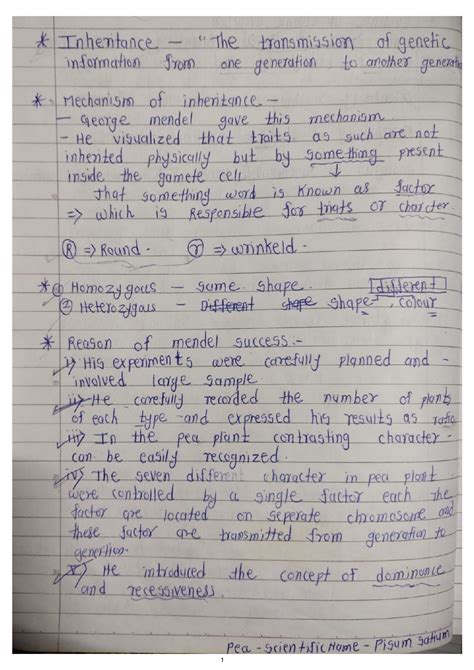 * Inheritance - "The transmission of genetic
information from one generation to another generation
* Mechanism of inheritance -
- George mendel gave this mechanism.
- He visualized that traits as such are not
inherited physically but by something present
inside the gamete cell
That something word is known as factor
=> which is Responsible for traits or charcter.
(R) => Round. (r) => wrinkeld.
* ① Homozygous - same shape. different
② Heterozygous - Different shape shape, colour
* Reason of mendel success:-
i) His experiments were carefully planned and -
involved large sample.
ii) He carefully recorded the number of plants
of each type and expressed his results as ratio
iii) In the pea plant contrasting character -
can be easily recognized.
iv) The seven different character in pea plant
were controlled by a single factor each the
factor are located on seperate chromosome and
these factor are transmitted from generation to
genertion.
v) He introduced the concept of dominance
and recessiveness.
Pea - Scientific Name - Pisum Sativum
1